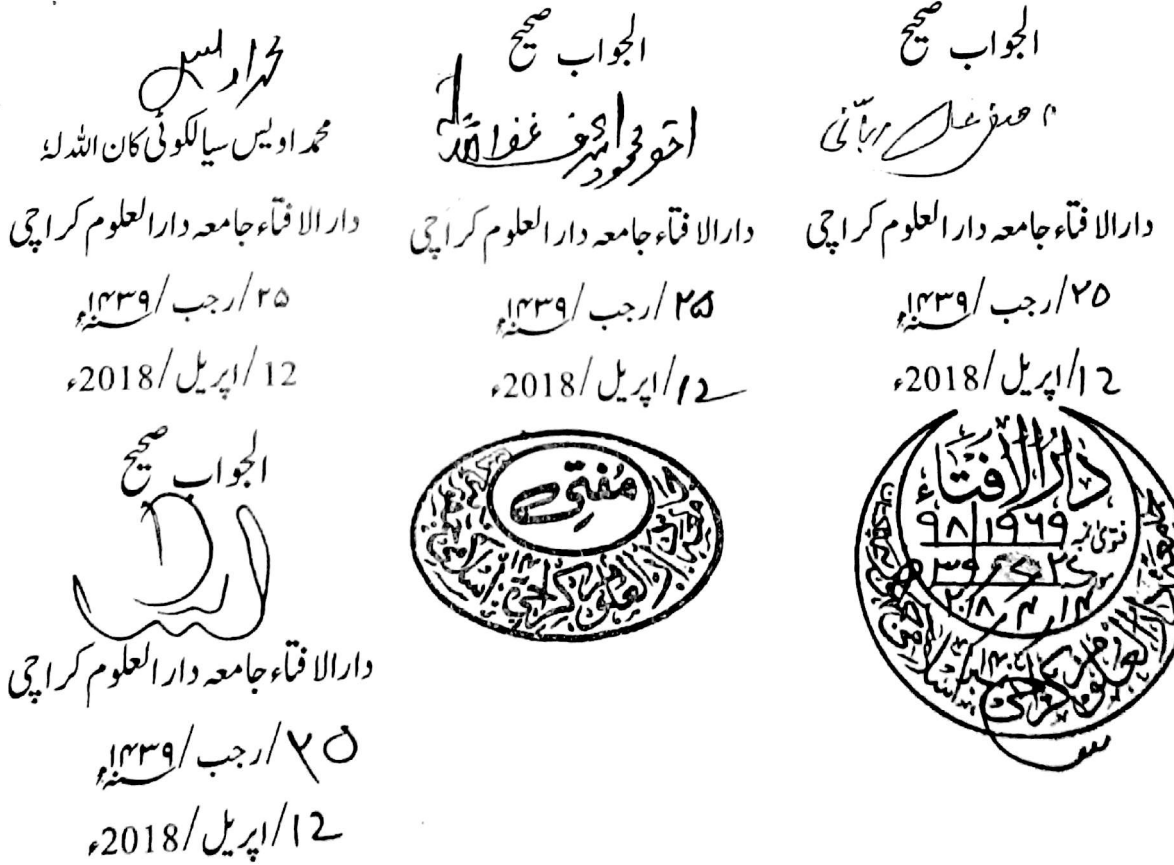 الجواب صحیح
دارالافتاء جامعہ دارالعلوم کراچی
۲۵/رجب/۱۴۳۹ھ
12/اپریل/2018ء
دارالافتاء
فتویٰ نمبر ۹۸/۱۹۶۹
الجواب صحیح
احقر محمود اشرف غفر اللہ لہ
دارالافتاء جامعہ دارالعلوم کراچی
۲۵/رجب/۱۴۳۹ھ
12/اپریل/2018ء
مفتی
محمد اویس
محمد اویس سیالکوٹی کان اللہ لہٗ
دارالافتاء جامعہ دارالعلوم کراچی
۲۵/رجب/۱۴۳۹ھ
12/اپریل/2018ء
الجواب صحیح
دارالافتاء جامعہ دارالعلوم کراچی
۲۵/رجب/۱۴۳۹ھ
12/اپریل/2018ء